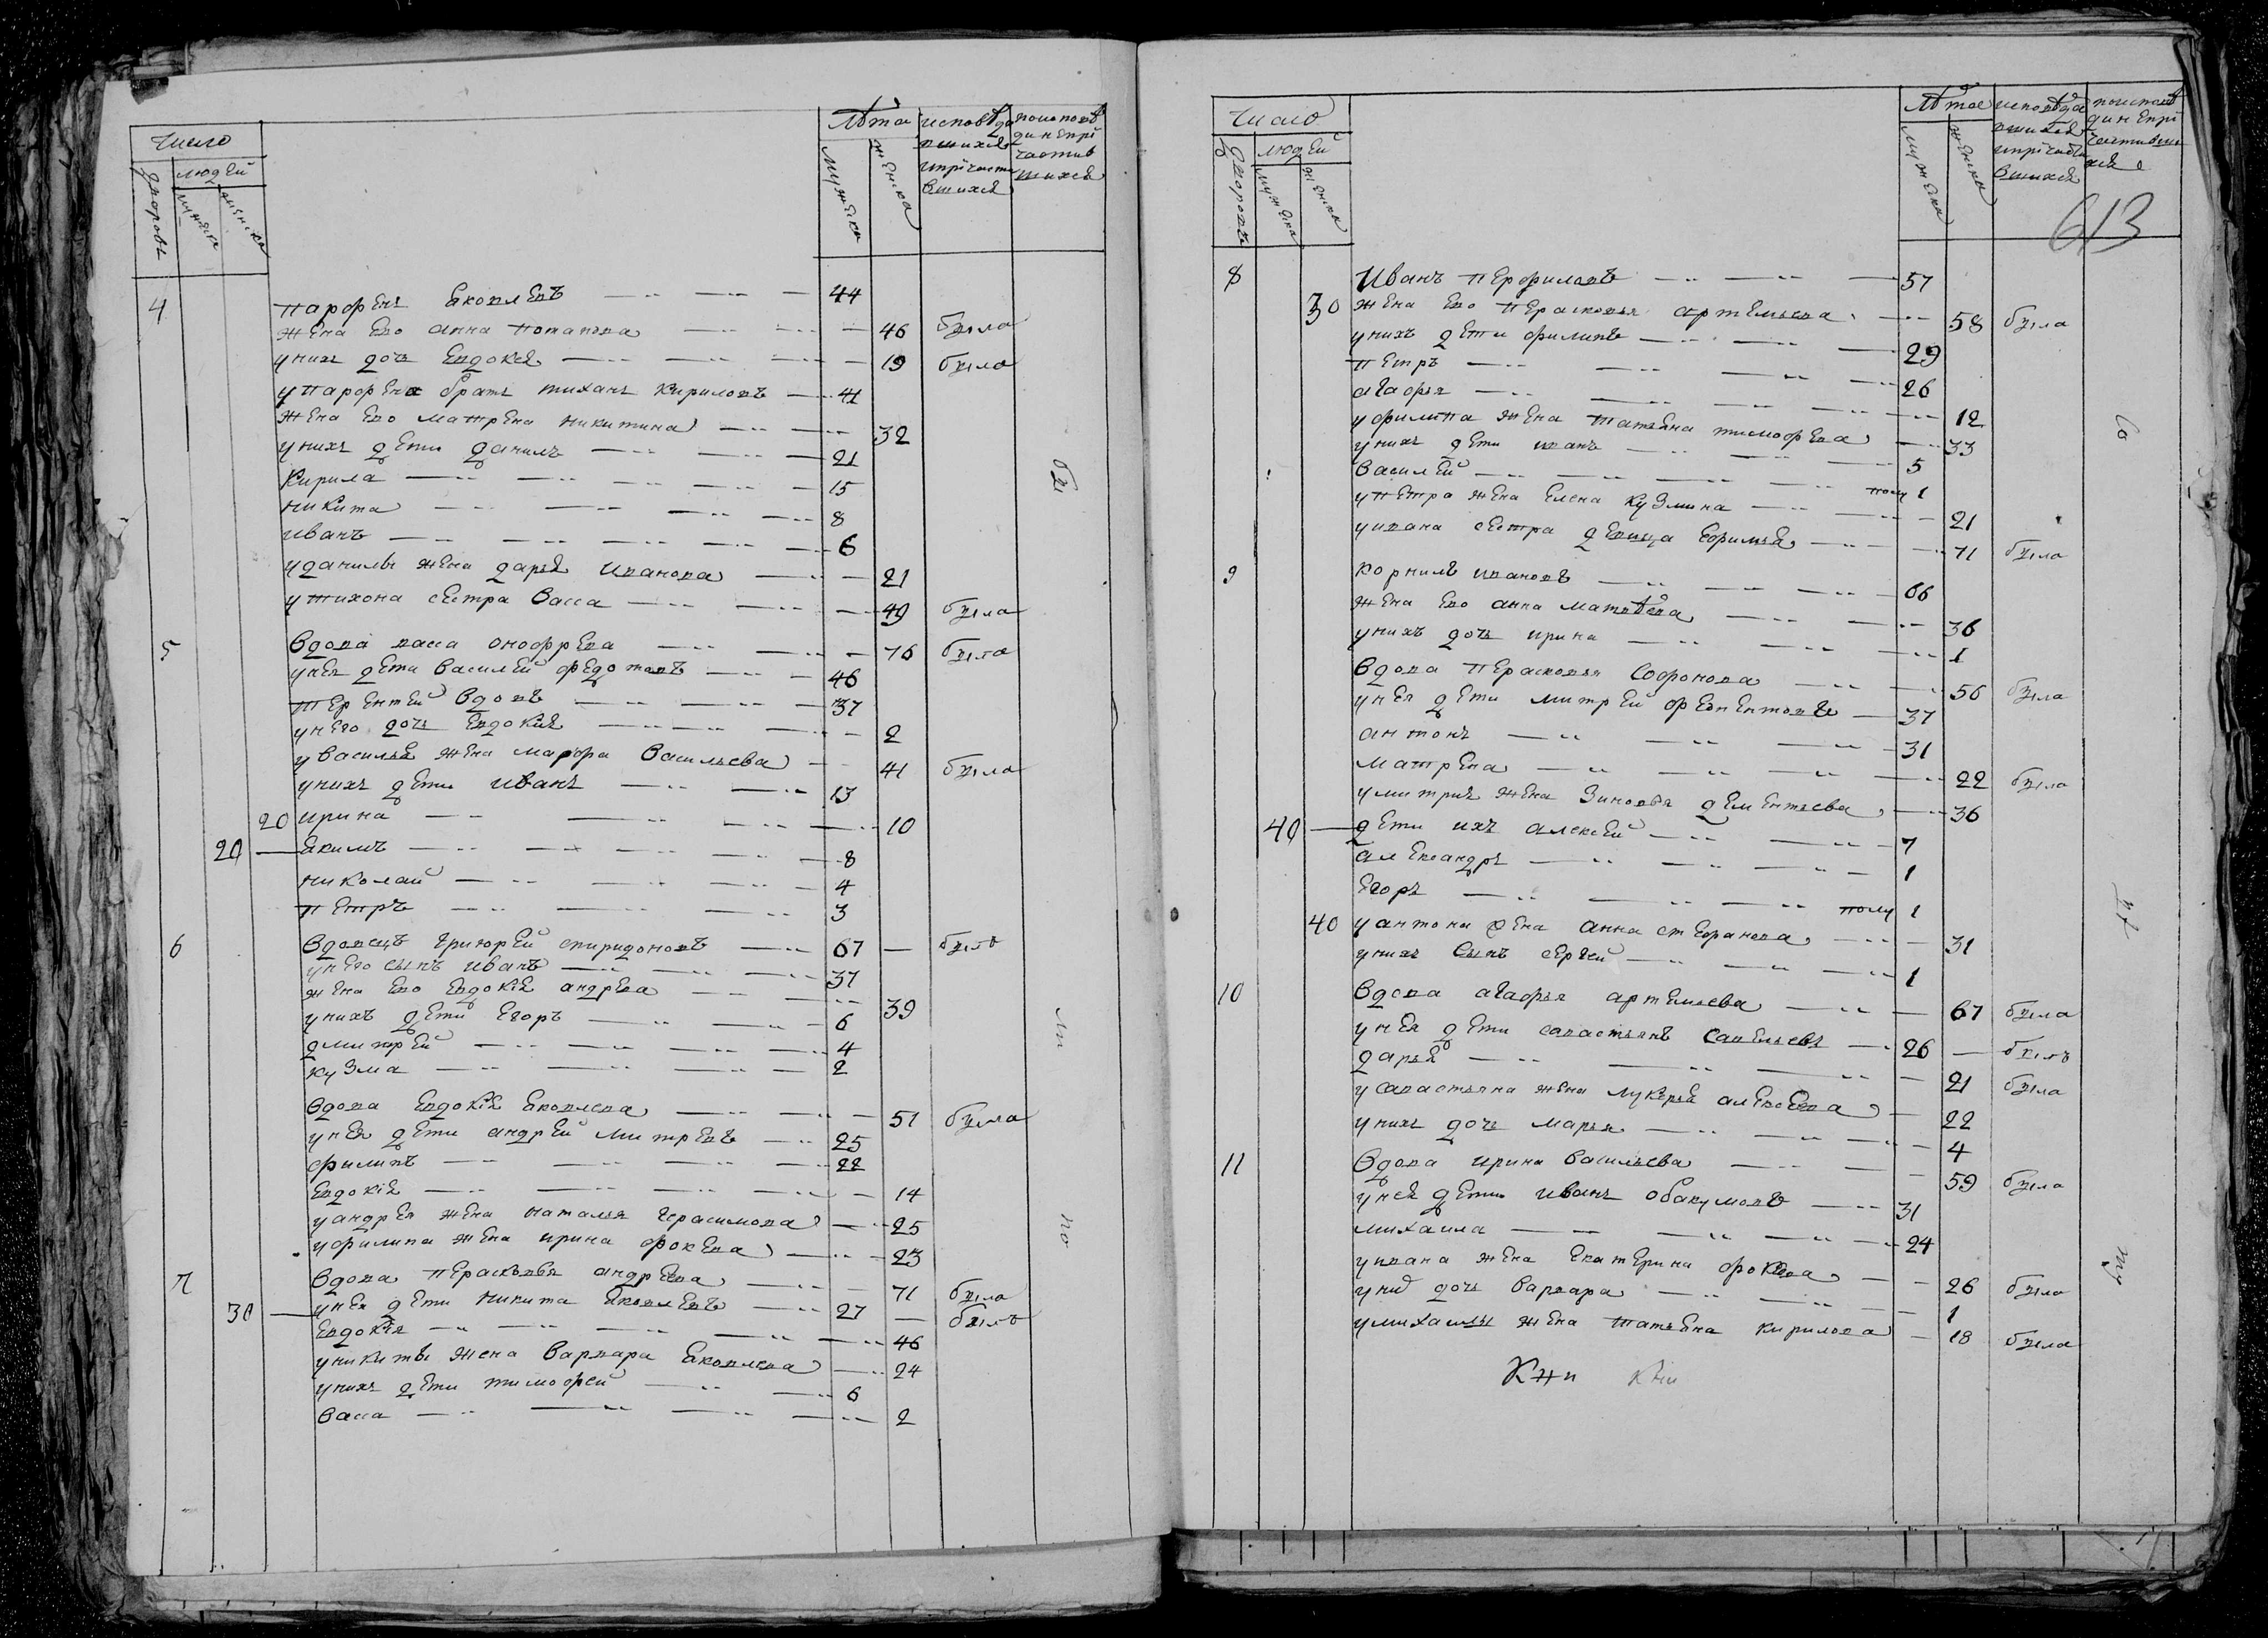 Число
людей
дворовъ
мужеска
женска
Лѣта
мужеска
женска
исповѣдавшихся и причастившихся
по исповѣди не причастившихся
4 парфенъ Ековлевъ 44
жена ево анна потапова 46 была
у них доч Евдокея 19 была
у парфена братъ тиханъ кириловъ 41
жена ево матрена никитина 32
у нихъ дети данилъ 21
Кирила 15
никита 8
иванъ 6
у данилы жена дарья иванова 21
у тихона сестра васса 49 была
5 вдова васса онофрева 76 была
у нея дети василей федотовъ 46
терентей вдовъ 37
у него дочь Евдокия 2
у василья жена марфа васильева 41 была
у нихъ дети иванъ 13
20 ирина 10
20 Екимъ 8
николай 4
петръ 3
6 вдовецъ григорей спиридоновъ 67 былъ
у него сынъ иванъ 37
жена ево Евдокея андрева 39
у нихъ дети Егоръ 6
дмитрей 4
кузма 2
вдова Евдокея Ековлева 51 была
у нея дети андрей митревъ 25
филипъ 22
Евдокея 14
у андрея жена наталья герасимова 25
у филипа жена ирина фокева 23
7 вдова перасковья андрева 71 была
30 у нея дети никита Яковлевъ 27 былъ
Евдокея 46
у никиты жена варвара Ековлева 24
у нихъ дети тимофей 6
васса 2
бы
ли
по
Число
людей
дворовъ
мужеска
женска
Лѣта
мужеска
женска
исповѣдавшихся и причастившихся
по исповѣди не причастившихся
613
8 Иванъ перфиловъ 57
30 жена ево перасковья артемьева 58 была
у нихъ дети филипъ 29
петръ 26
агафья 12
у филипа жена татьяна тимофева 33
у нихъ дети иванъ 5
василей полу 1
у петра жена Елена кузмина 21
у ивана сестра девица Ефимья 71 была
9 корнилъ ивановъ 66
жена ево анна матвѣева 36
у нихъ дочь ирина 1
вдова перасковья софонова 56 была
у нея дети митрей февентовъ 37
антонъ 31
матрена 22 была
у митрия жена зиновья дементьева 36
40 дети ихъ алексей 7
александръ 1
Егоръ полу 1
40 у антона жена анна стефанова 31
у нихъ сынъ сергей 1
10 вдова агафья артемьева 67 была
у нея дети савастьянъ савельевъ 26 былъ
дарья 21 была
у савастьяна жена лукерья алексеева 22
у нихъ дочь марья 4
11 вдова ирина васильева 59 была
у нея дети иванъ обакумовъ 31
михаила 24
у ивана жена Екатерина фокеева 26 была
у нихъ дочь варвара 1
у михаилы жена татьяна кирилова 18 была
Кжи Кжи